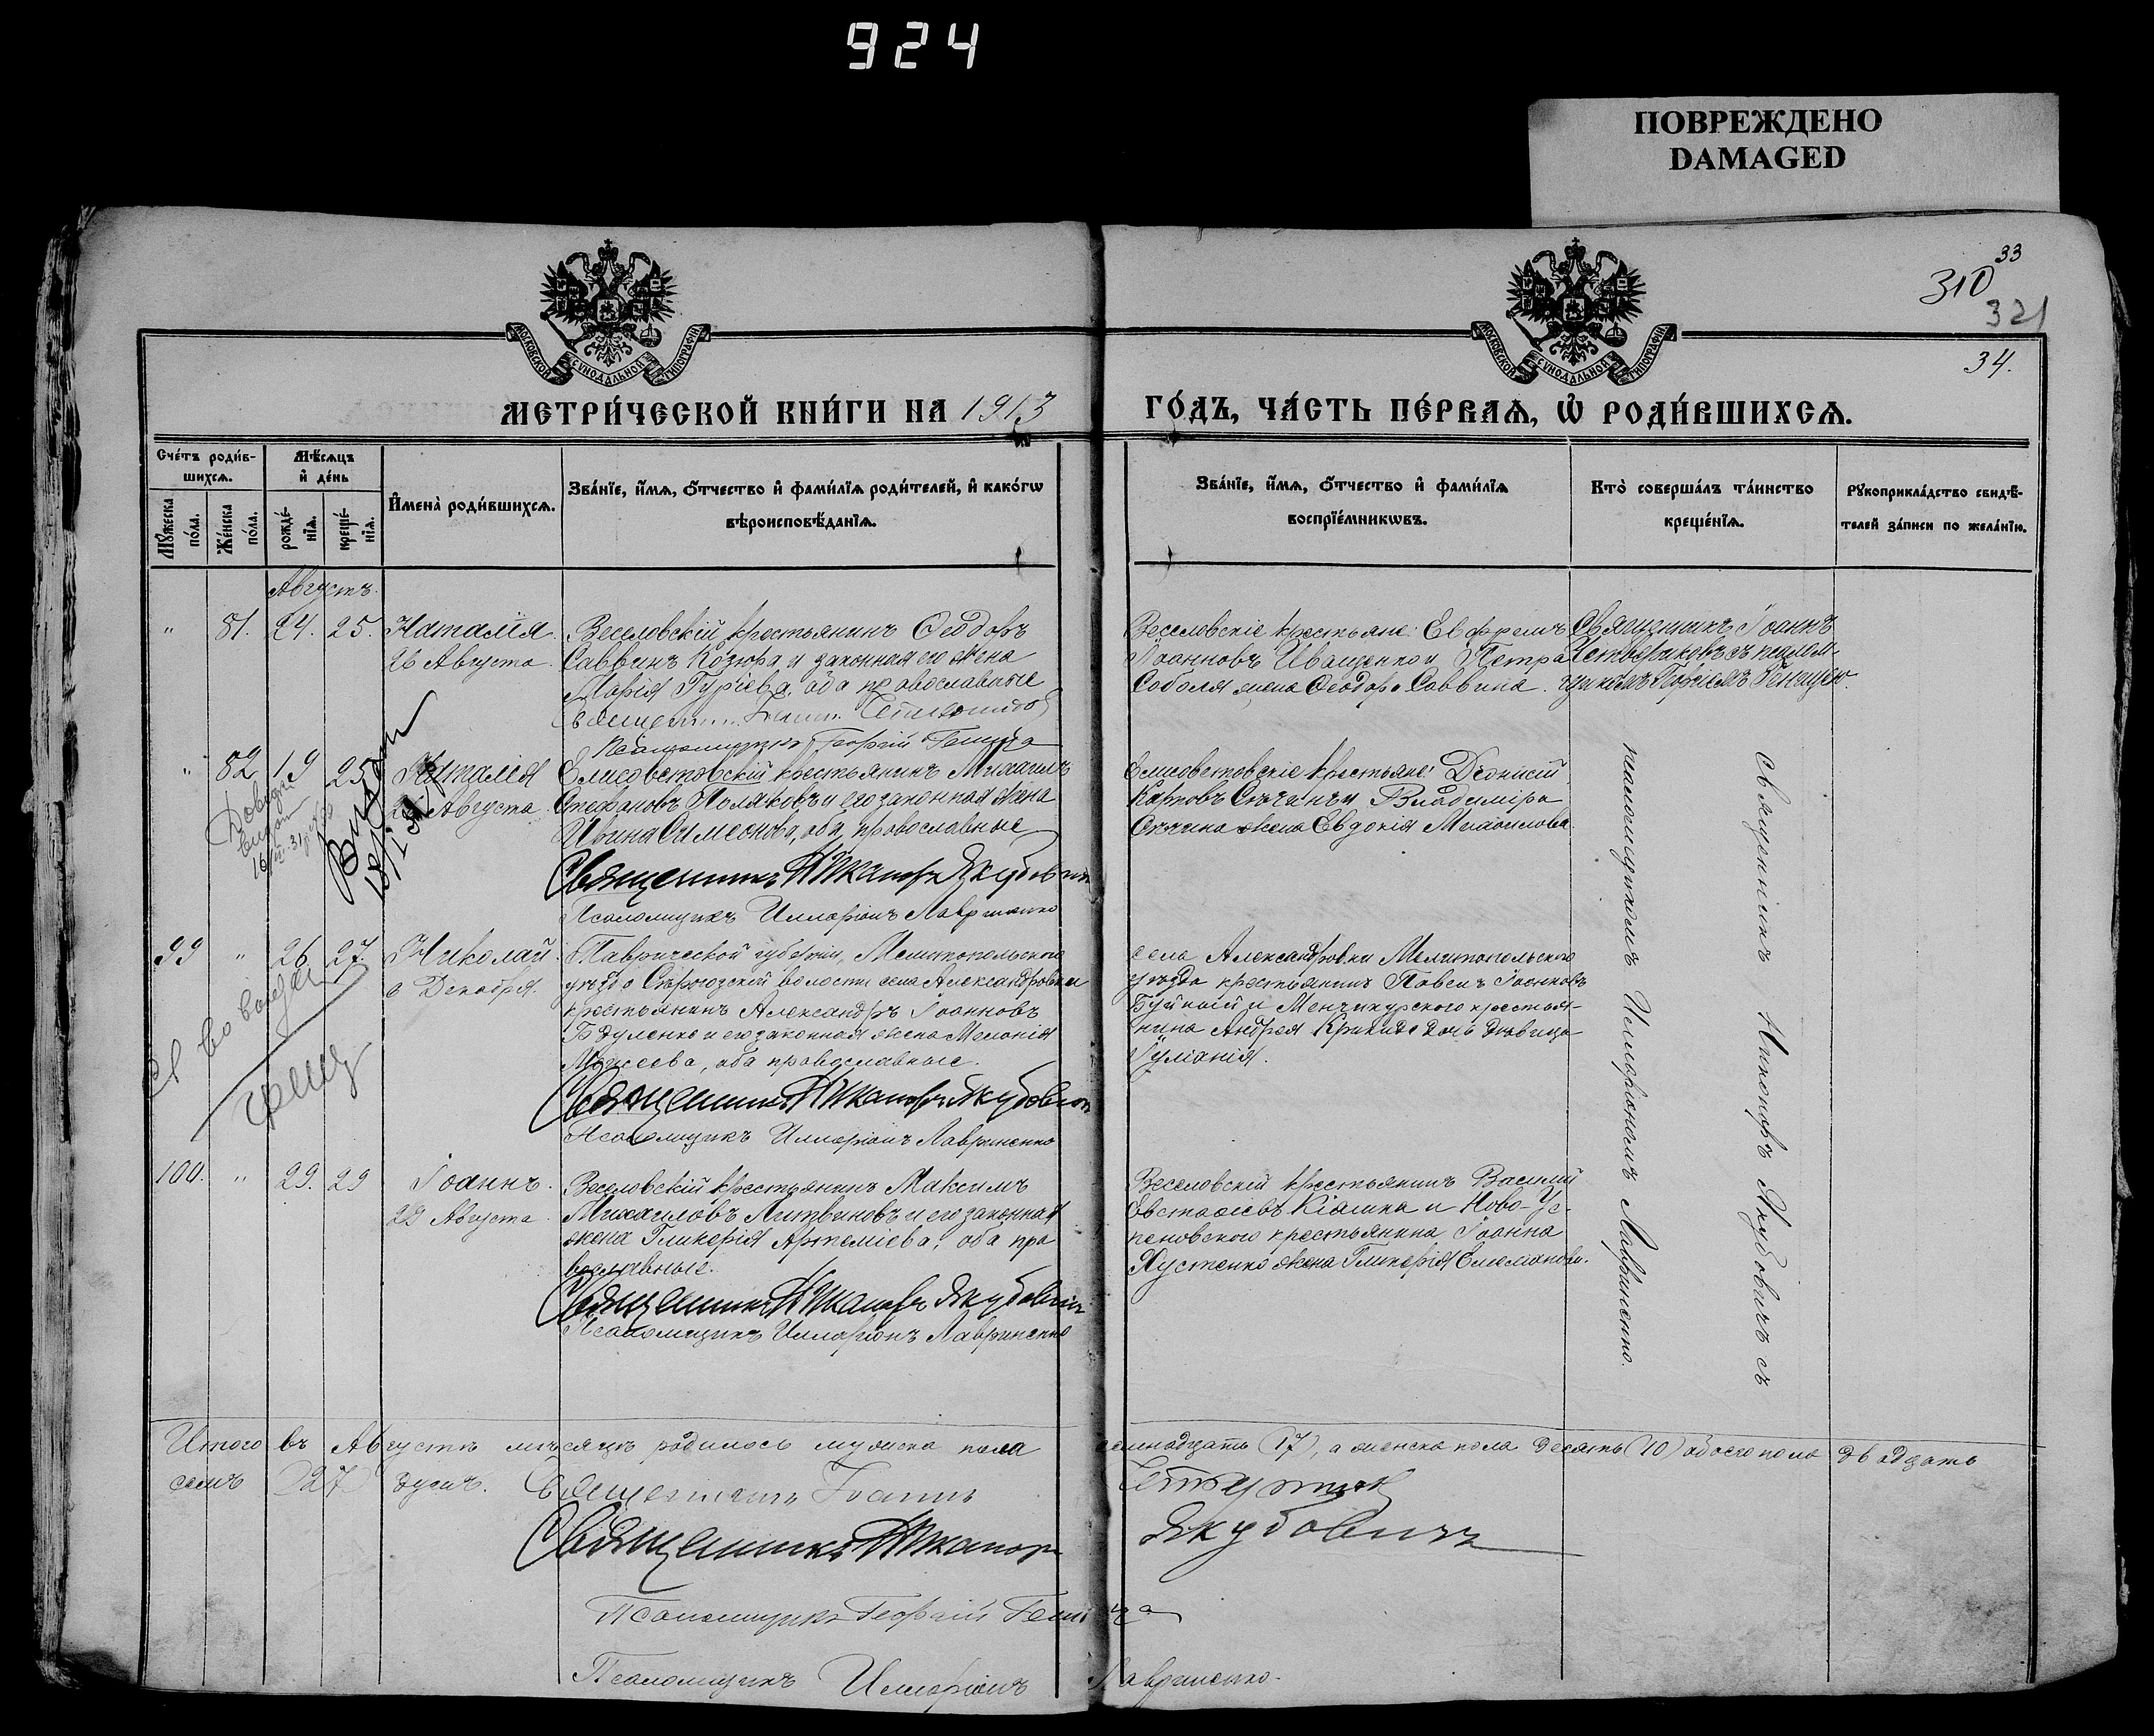 924
ПОВРЕЖДЕНО
DAMAGED
33
310
321
34.
МОСКОВСКОЙ СѴНОДАЛЬНОЙ ТИПОГРАФІИ
МОСКОВСКОЙ СѴНОДАЛЬНОЙ ТИПОГРАФІИ
МЕТРИ́ЧЕСКОЙ КНИ́ГИ НА 1913
ГО́ДЪ, ЧА́СТЬ ПЕ́РВАѦ, Ѡ҆ РОДИ́ВШИХСѦ.
Сче́тъ роди́в-
шихсѧ.
Мѣ́сѧцъ
и҆ де́нь
Мꙋ́жеска
по́ла.
Же́нска
по́ла.
рожде́-
нїѧ.
креще́-
нїѧ.
И҆мена̀ роди́вшихсѧ.
Зва́нїе, и҆́мѧ, ѻ҆́тчество и҆ фами́лїѧ роди́телей, и҆ како́гѡ
вѣроисповѣ́данїѧ.
Зва́нїе, и҆́мѧ, ѻ҆́тчество и҆ фами́лїѧ
воспрїе́мникѡвъ.
Кто̀ соверша́лъ та́инство
креще́нїѧ.
Рꙋкоприкла́дство свидѣ́-
телей за́писи по жела́нїю.
Августъ.
" 81. 24. 25. Наталія
26 Августа.
Веселовскій крестьянинъ Ѳеодоръ
Саввинъ Козюра и законная его жена
Марія Гурьева, оба православные
Псаломщикъ Георгій Геница
Веселовскіе крестьяне: Евфремъ
Іоанновъ Иващенко и Петра
Соболя жена Ѳеодора Саввина.
Священникъ Іоаннъ
Четвериковъ съ псалом-
щикомъ Георгіемъ
" 82 19 25 Наталія
26 Августа.
Выдан
Елисоветовскій крестьянинъ Михаилъ
Стефановъ Поляковъ и его законная жена
Ирина Симеонова, оба православные
Священникъ Никаноръ Якубович
Псаломщикъ Илларіонъ Лавриненко
Елисоветовскіе крестьяне: Діонисій
Карповъ Сычъ и Владиміра
жена Евдокія Михаилова.
99 " 26 27. Николай.
6 Декабря.
Таврической губерніи, Мелитопольскаго
уѣзда волости села Александровки
крестьянинъ Александръ Іоанновъ
и его законная жена Меланія
Моисеева, оба православные.
Священникъ Никаноръ Якубович
Псаломщикъ Илларіонъ Лавриненко
села Александровки Мелитопольскаго
уѣзда крестьянинъ Павелъ Іоанновъ
и Менчикурскаго крестья-
нина Андрея дочь дѣвица
Іуліанія.
100. " 29. 29 Іоаннъ.
29 Августа.
Веселовскій крестьянинъ Максимъ
Михаиловъ Литвиновъ и его законная
жена Гликерія Артеміева, оба пра
вославные.
Священникъ Никаноръ Якубович
Псаломщикъ Илларіонъ Лавриненко
Веселовскій крестьянинъ Василій
Евстафіевъ Кіяшка и Ново-Ус-
пеновскаго крестьянина Іоанна
жена Гликерія Емеліанова.
Священникъ Никаноръ Якубовичъ съ
псаломщикомъ Илларіономъ Лавриненко.
Итого въ Августѣ мѣсяцѣ родилось мужеска пола семнадцать (17), а женска пола десять (10) обоего пола двадцать
семь (27) душъ.
Священникъ Іоаннъ
Священникъ Никаноръ Якубовичъ
Псаломщикъ Георгій Геница
Псаломщикъ Илларіонъ Лавриненко.